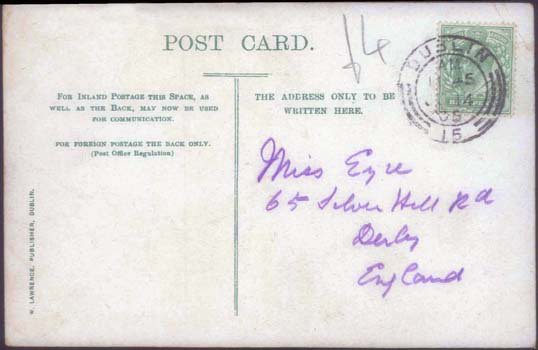 POST CARD.
£4
FOR INLAND POSTAGE THIS SPACE, AS
WELL AS THE BACK, MAY NOW BE USED
FOR COMMUNICATION.
FOR FOREIGN POSTAGE THE BACK ONLY.
(Post Office Regulation)
THE ADDRESS ONLY TO BE
WRITTEN HERE.
DUBLIN
05
15
Miss Eyre
65 Silver Hill Rd
Derby
England
W. LAWRENCE, PUBLISHER, DUBLIN.